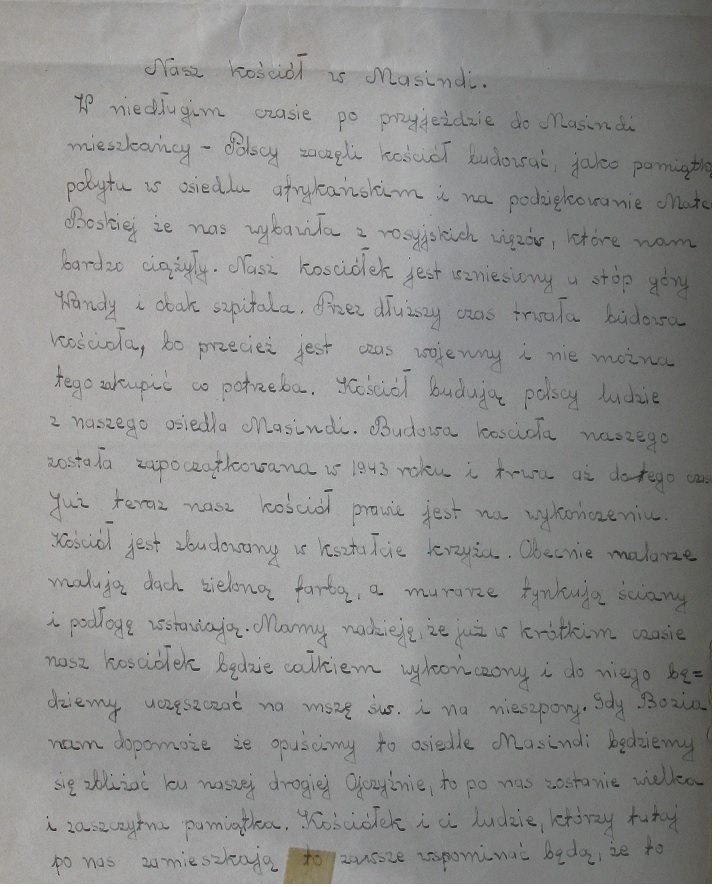 Nasz kościół w Masindi.
W niedługim czasie po przyjeździe do Masindi
mieszkańcy – Polscy zaczęli kościół budować, jako pamiątkę
pobytu w osiedlu afrykańskim i na podziękowanie Matce
Boskiej że nas wybawiła z rosyjskich więzów, które nam
bardzo ciążyły. Nasz kosciółek jest wzniesiony u stóp góry
Wandy i obak szpitala. Przez dłuższy czas trwała budowa
kościoła, bo przecież jest czas wojenny i nie można
tego zakupić co potrzeba. Kościół budują polscy ludzie
z naszego osiedla Masindi. Budowa koscioła naszego
została zapoczątkowana w 1943 roku i trwa aż do tego czasu
Już teraz nasz kościół prawie jest na wykończeniu.
Kościół jest zbudowany w kształcie krzyża. Obecnie malarze
malują dach zieloną farbą, a murarze tynkują ściany
i podłogę wstawiają. Mamy nadzieję, że już w krótkim czasie
nasz kosciółek będzie całkiem wykończony i do niego bę=
dziemy uczęszczać na mszę św. i na nieszpory. Gdy Bozia
nam dopomoże że opuścimy to osiedle Masindi będziemy
się zbliżać ku naszej drogiej Ojczyźnie, to po nas zostanie wielka
i zaszczytna pamiątka. Kościółek i ci ludzie, którzy tutaj
po nas zamieszkają to zawsze wspominać będą, że to